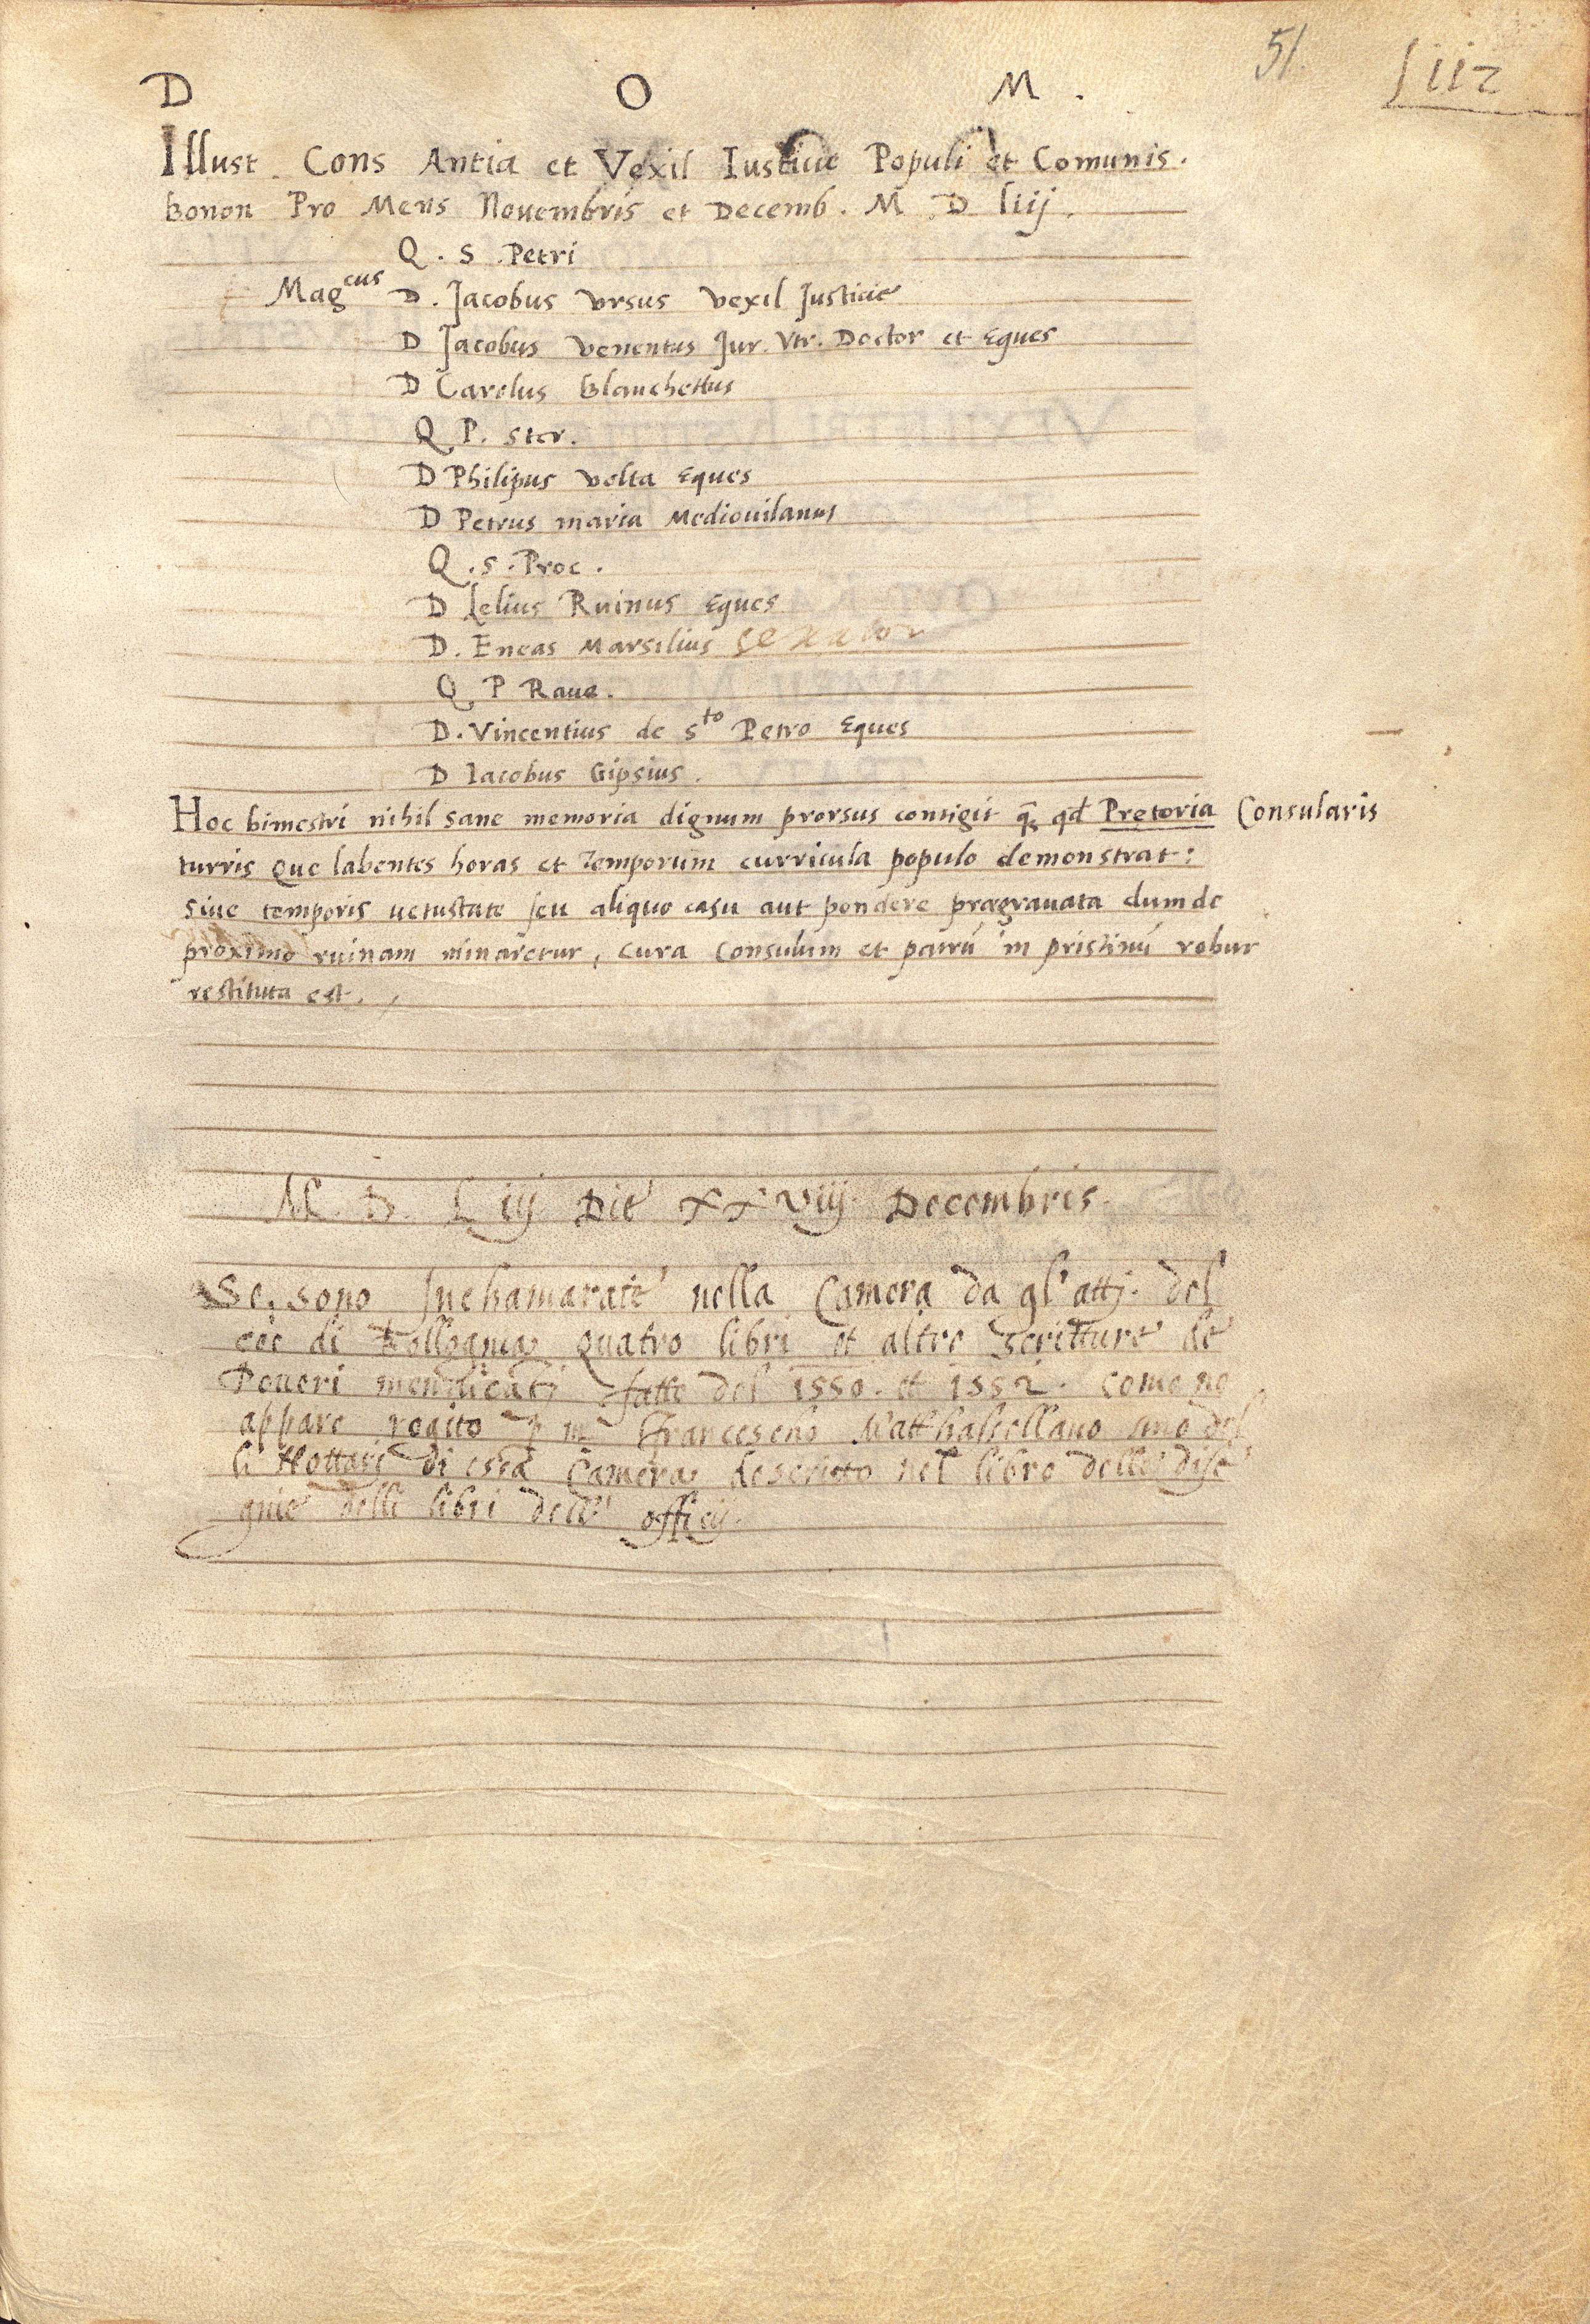 51.
liiz
D O M .
Illust. Cons Antia et Vexil Iusticie Populi et Comunis.
Bonon Pro Mens Nouembris et Decemb. M D liij.
Q. S. Petri
Magcus D. Jacobus Vrsus Vexil Justicie
D Jacobus Venentus Jur. Vtr. Doctor et Eques
D Carolus Blanchettus
Q P. Ster.
D Philipus Volta Eques
D Petrus maria Mediouilanus
Q. S. Proc.
D Lelius Ruinus Eques
D. Eneas Marsilius senator
Q P Raue.
D. Vincentius de Sto Petro Eques
D Iacobus Gipsius.
Hoc bimestri nihil sane memoria dignum prorsus contigit qd Pretoria Consularis
turris que labentes horas et temporum curricula populo demonstrat:
siue temporis uetustate seu aliquo casu aut pondere prægrauata dum de
proximo ruinam minaretur, cura Consulum et patrū in pristinū robur
restituta est.
M. D. Liij Die XXViij. Decembris.
Se. sono Inchamarate nella Camera da gl'attj. del
di quatro libri et altre scritture de
Poueri mendicatj fatte del 1550. et 1552. come ne
appare rogito m Francescho Matthascellano uno del
li Nottari di essa Camera descritto nel libro delle dise
gnie delli libri dell' officij.